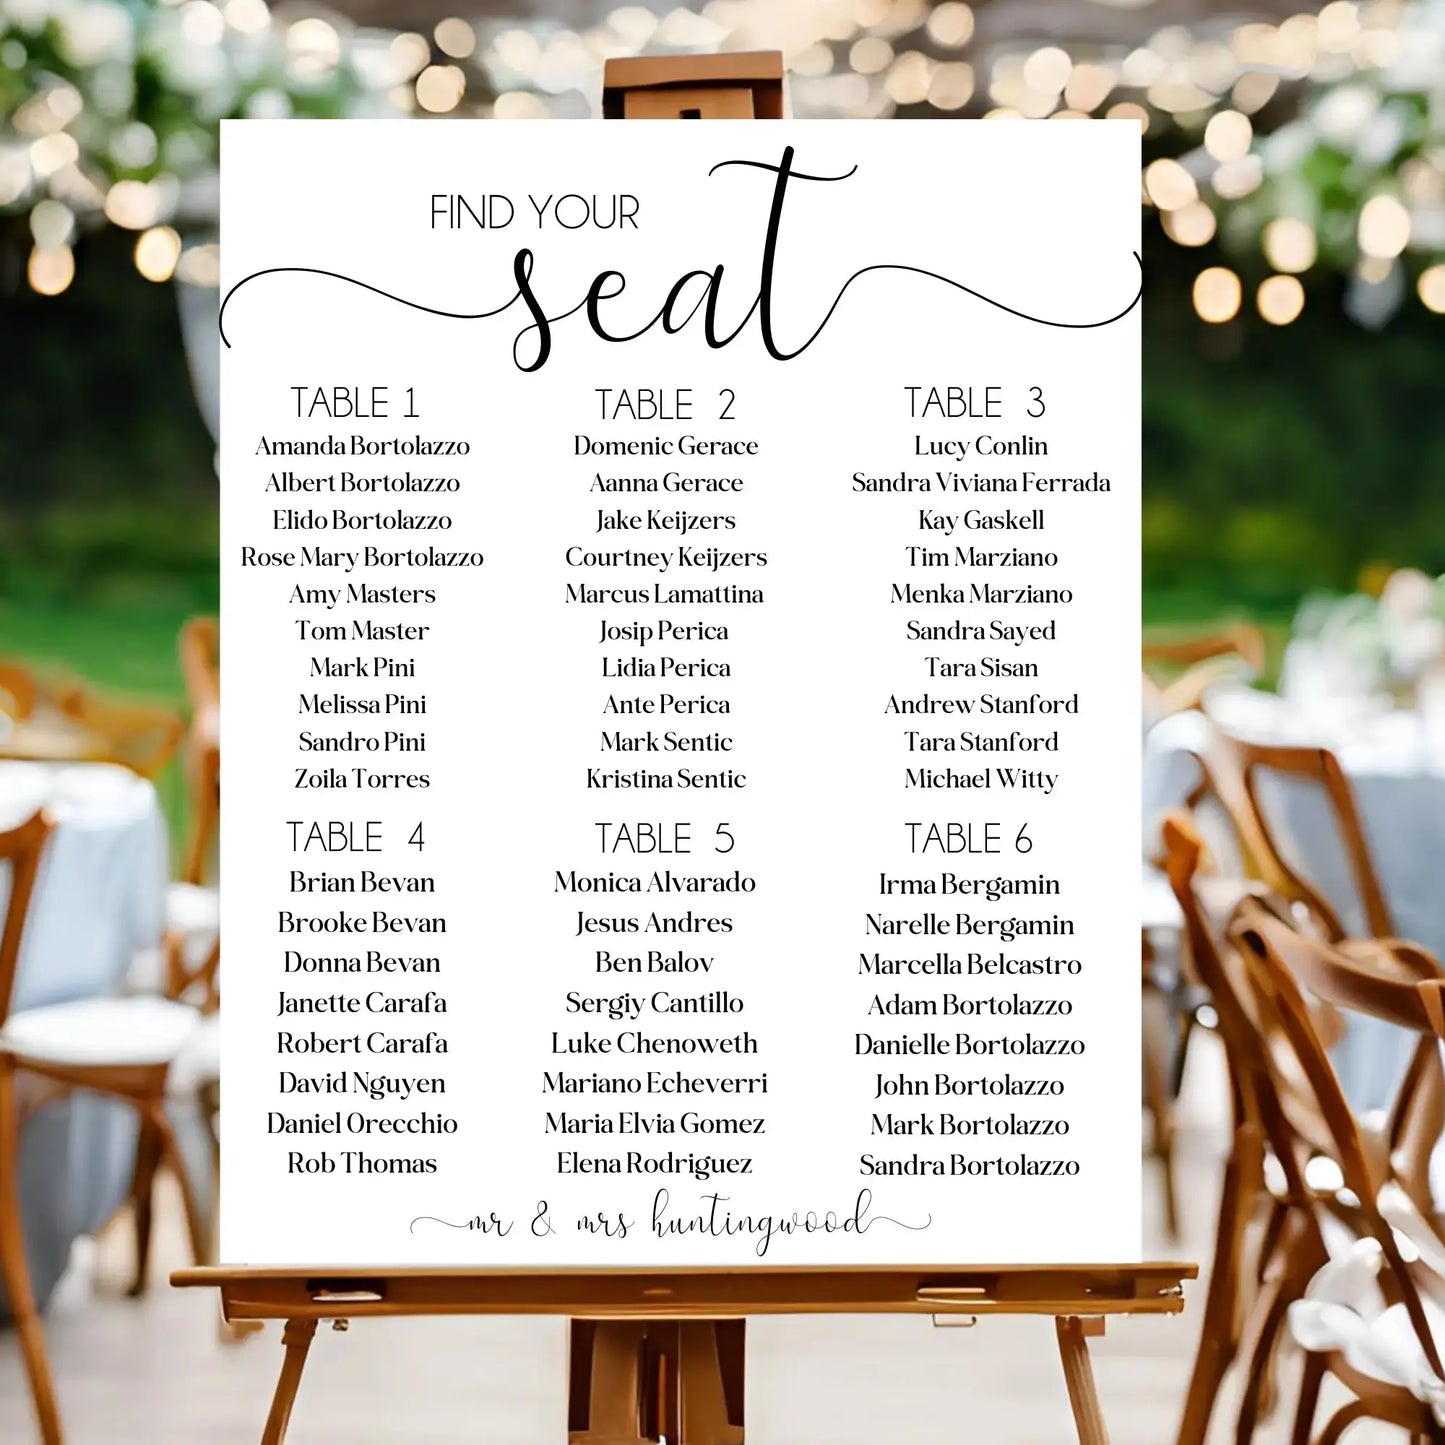 FIND YOUR
seat
TABLE 1
Amanda Bortolazzo
Albert Bortolazzo
Elido Bortolazzo
Rose Mary Bortolazzo
Amy Masters
Tom Master
Mark Pini
Melissa Pini
Sandro Pini
Zoila Torres
TABLE 2
Domenic Gerace
Aanna Gerace
Jake Keijzers
Courtney Keijzers
Marcus Lamattina
Josip Perica
Lidia Perica
Ante Perica
Mark Sentic
Kristina Sentic
TABLE 3
Lucy Conlin
Sandra Viviana Ferrada
Kay Gaskell
Tim Marziano
Menka Marziano
Sandra Sayed
Tara Sisan
Andrew Stanford
Tara Stanford
Michael Witty
TABLE 4
Brian Bevan
Brooke Bevan
Donna Bevan
Janette Carafa
Robert Carafa
David Nguyen
Daniel Orecchio
Rob Thomas
TABLE 5
Monica Alvarado
Jesus Andres
Ben Balov
Sergiy Cantillo
Luke Chenoweth
Mariano Echeverri
Maria Elvia Gomez
Elena Rodriguez
TABLE 6
Irma Bergamin
Narelle Bergamin
Marcella Belcastro
Adam Bortolazzo
Danielle Bortolazzo
John Bortolazzo
Mark Bortolazzo
Sandra Bortolazzo
mr & mrs huntingwood